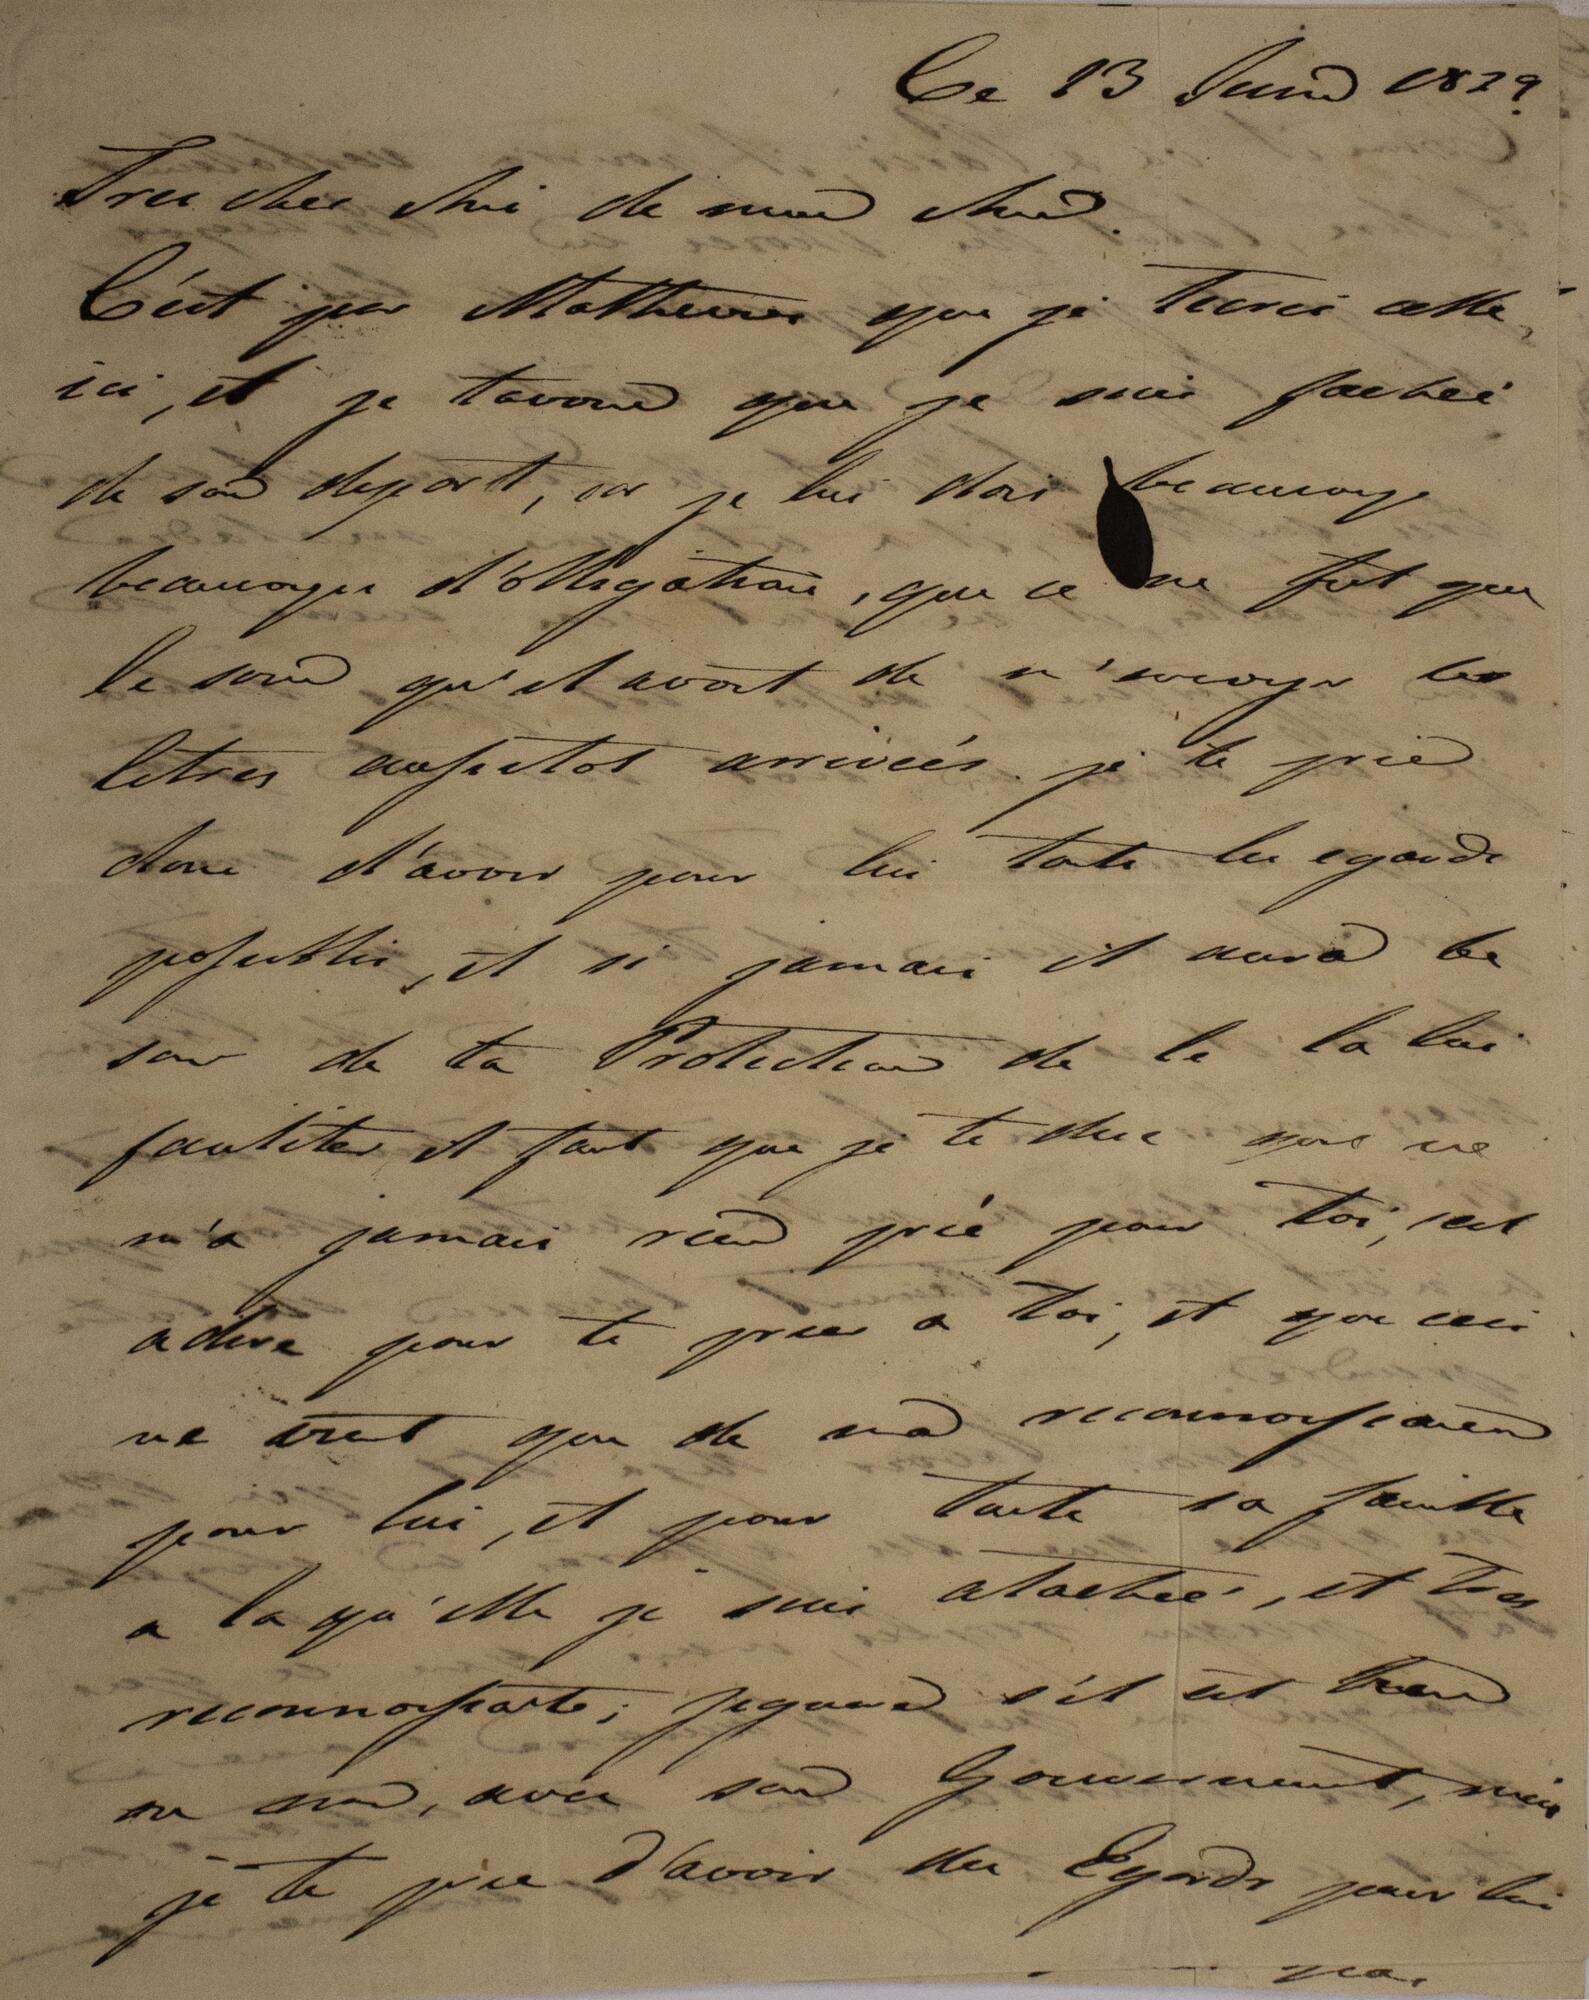 Ce 13 Juin 1829.
Tres cher Ami de mon Ame.
C'est par Matheus que je t'ecris cette
ici, et je t'avoue que je suis fachée
de son depart, car je lui dois beaucoup
beaucoup d'obligations, que ce ne fut que
le soin qu'il avait de m'envoyer les
letres aussitot arrivées. je te prie
donc d'avoir pour lui tote les egards
possibles, et si jamais il aura be
soin de ta Protection de le la lui
faciliter il faut que je te dise qui ne
m'a jamais rien prié pour toi, cest
adire pour te prier a toi, et que ceci
ne vient que de ma reconnoissance
pour lui, et pour toute sa famille
a la qu'elle je suis atachée, et tres
reconnoissante; jegnore s'il est bien
ou non, avec son Gouvernement, mais
je te prie d'avoir des Egards pour lui